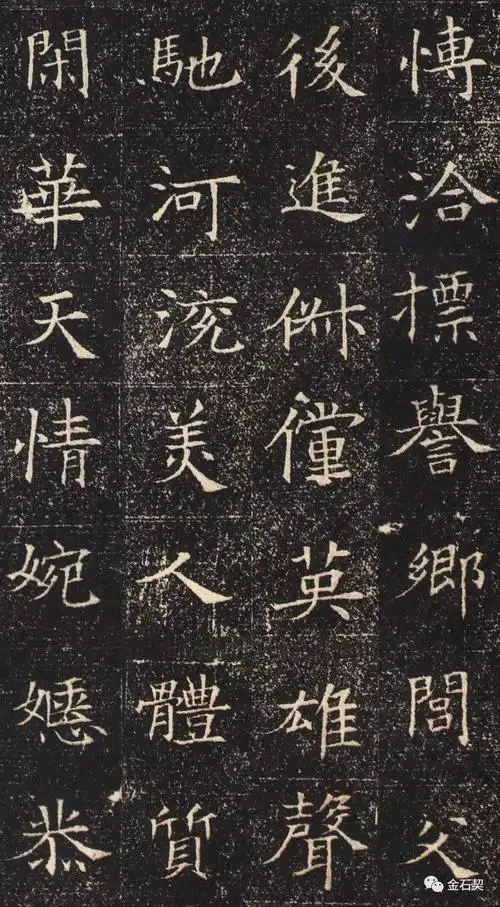 愽洽摽譽鄉閭父
後進俶儻英雄聲
馳河渷美人體質
閑華天情婉嫕恭
金石契